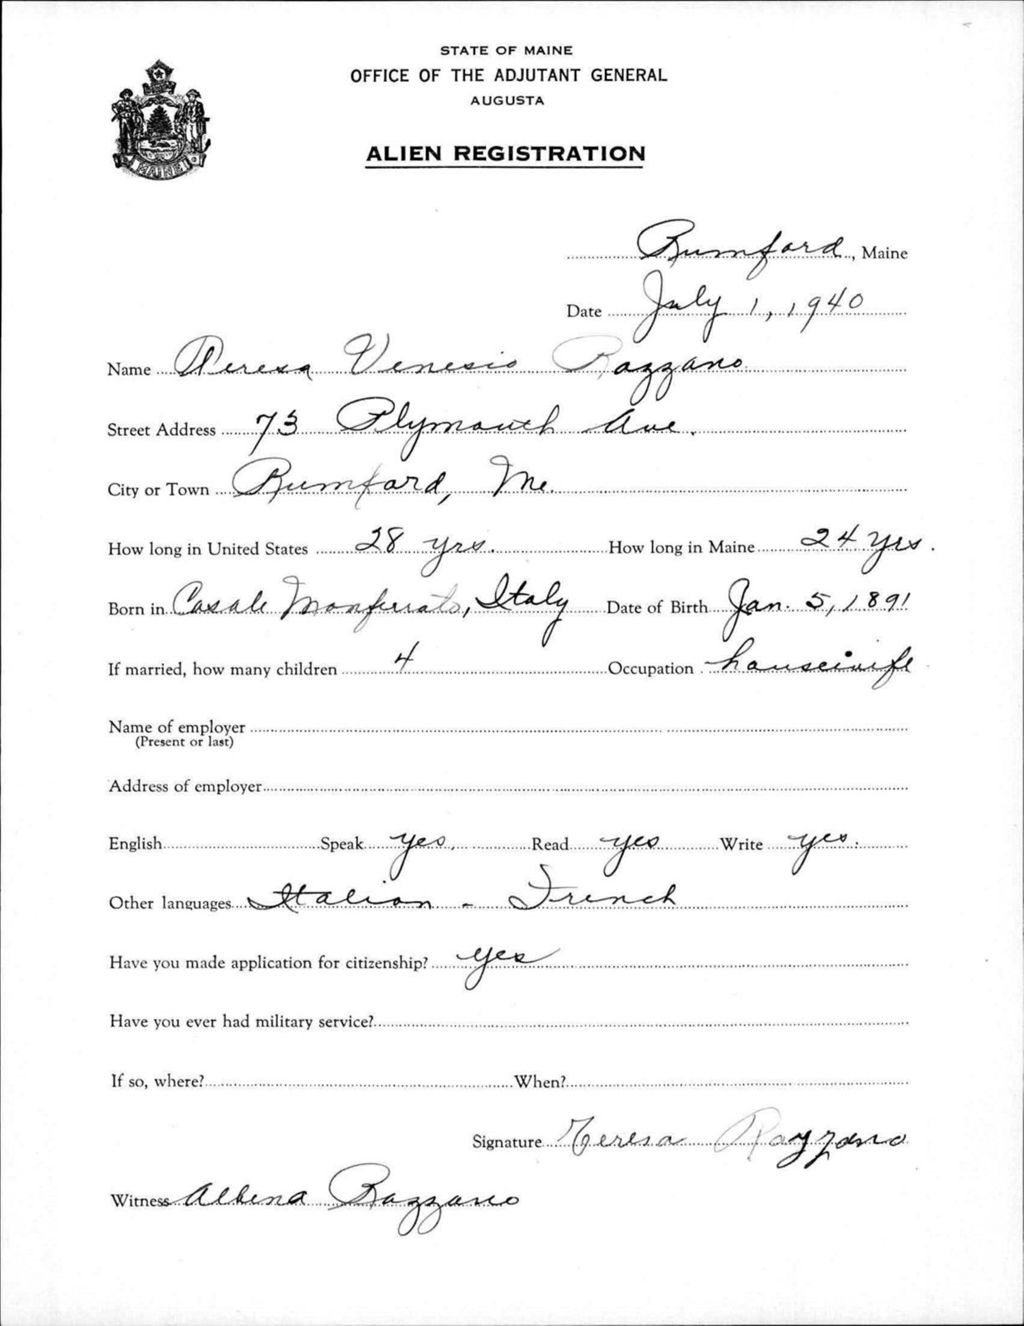 STATE OF MAINE
OFFICE OF THE ADJUTANT GENERAL
AUGUSTA
ALIEN REGISTRATION
MAINE
Rumford, Maine
Date July 1, 1940
Name Teresa Venesio Razzano
Street Address 73 Plymouth Ave.
City or Town Rumford, Me.
How long in United States 28 yrs. How long in Maine 24 yrs.
Born in Casale Monferrato, Italy Date of Birth Jan. 5, 1891
If married, how many children 4 Occupation housewife
Name of employer
(Present or last)
Address of employer
English Speak yes. Read yes Write yes.
Other languages Italian - French
Have you made application for citizenship? yes
Have you ever had military service?
If so, where? When?
Signature Teresa Razzano
Witness Albena Razzano